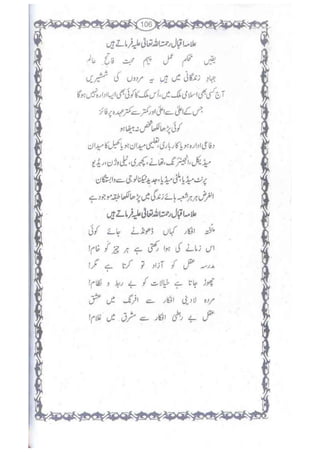 106
علامہ اقبال رحمۃ اللہ تعالیٰ علیہ فرماتے ہیں
یقیں محکم عمل پیہم محبت فاتح عالم
جہاد زندگانی میں ہیں یہ مردوں کی شمشیریں
آج کسی بھی اسلامی ملک میں، اس ملک کا کوئی بھی ایسا ادارہ نہیں ہوگا
جس کے اعلیٰ سے اعلیٰ اور کمتر سے کمتر عہدہ پر فائز
کوئی پڑھا لکھا شخص نہ بیٹھا ہو
دفاعی ادارہ ہو یا کاروباری، تعلیمی میدان ہو یا کھیل کا میدان
میڈیکل، انجینئرنگ، تھانے، کچہری، ٹیلی وژن، ریڈیو
پرنٹ میڈیا، ملٹی میڈیا، جدید ٹیکنالوجی سے وابستگان
الغرض ہر ہر شعبہ ہائے زندگی میں پڑھا لکھا طبقہ موجود ہے
علامہ اقبال رحمۃ اللہ تعالیٰ علیہ فرماتے ہیں
پختہ افکار کہاں ڈھونڈنے جائے کوئی
اس زمانے کی ہوا رکھتی ہے ہر چیز کو خام!
مدرسہ عقل کو آزاد تو کرتا ہے مگر!
چھوڑ جاتا ہے خیالات کو بے ربط و نظام!
مردہ لادینی افکار سے افرنگ میں عشق
عقل بے ربطئی افکار سے مشرق میں غلام!